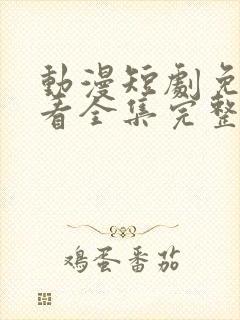 動漫短劇免
看全集完整
鸡蛋番茄